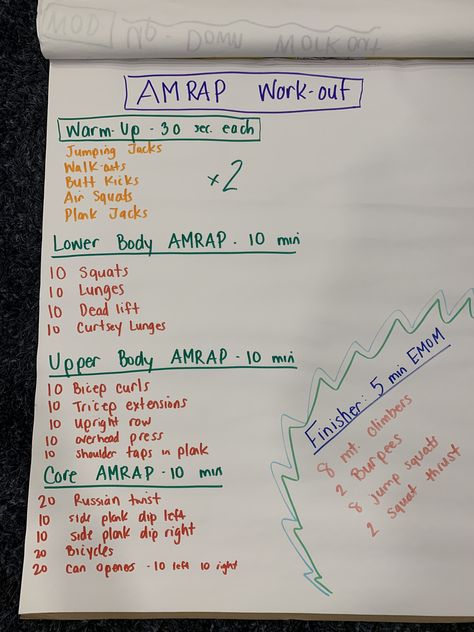 AMRAP Work-out
Warm-Up - 30 sec. each
Jumping Jacks
Walk-outs
Butt Kicks
Air Squats
Plank Jacks
x2
Lower Body AMRAP - 10 min
10 Squats
10 Lunges
10 Dead lift
10 Curtsey Lunges
Upper Body AMRAP - 10 min
10 Bicep curls
10 Tricep extensions
10 Upright row
10 overhead press
10 shoulder taps in plank
Core AMRAP - 10 min
20 Russian twist
10 side plank dip left
10 side plank dip right
20 Bicycles
20 can openers - 10 left 10 right
Finisher: 5 min EMOM
8 mt. climbers
2 Burpees
8 Jump squats
2 Squat thrust